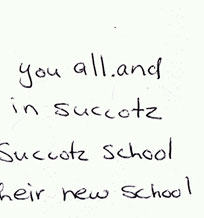 you all.and
in succotz
Succotz school
heir new school